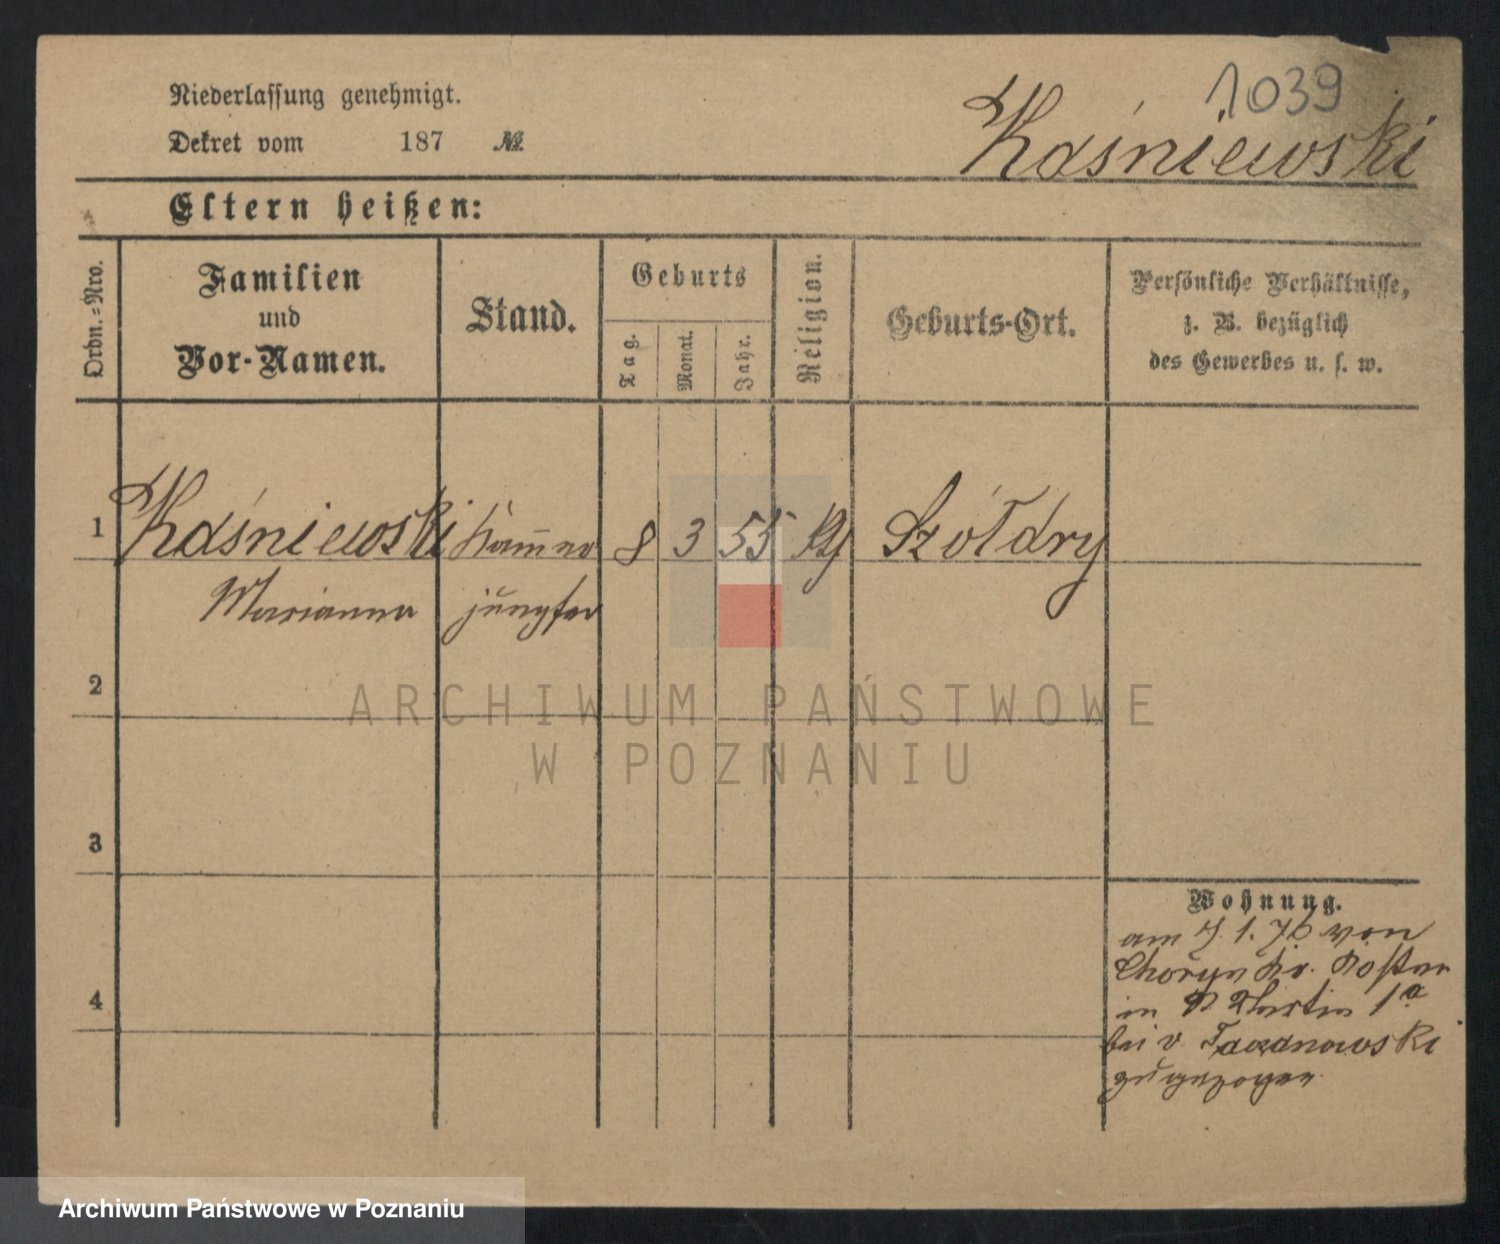 1039
Niederlassung genehmigt.
Dekret vom 187 №
Kaśniewski
Eltern heißen:
Ordn.-Nro.
Familien
und
Vor-Namen.
Stand.
Geburts
Tag.
Monat.
Jahr.
Religion.
Geburts-Ort.
Persönliche Verhältnisse,
z. B. bezüglich
des Gewerbes u. s. w.
1 Kaśniewski Kam̅er 8 3 55 Szółdry
Marianna jungfer
2
ARCHIWUM PAŃSTWOWE
W POZNANIU
3
Wohnung.
am 7. 1. 76 von
Choryn Kr. Kosten
in St Martin 1a
4
bei v Taczanowski
zugezogen
Archiwum Państwowe w Poznaniu